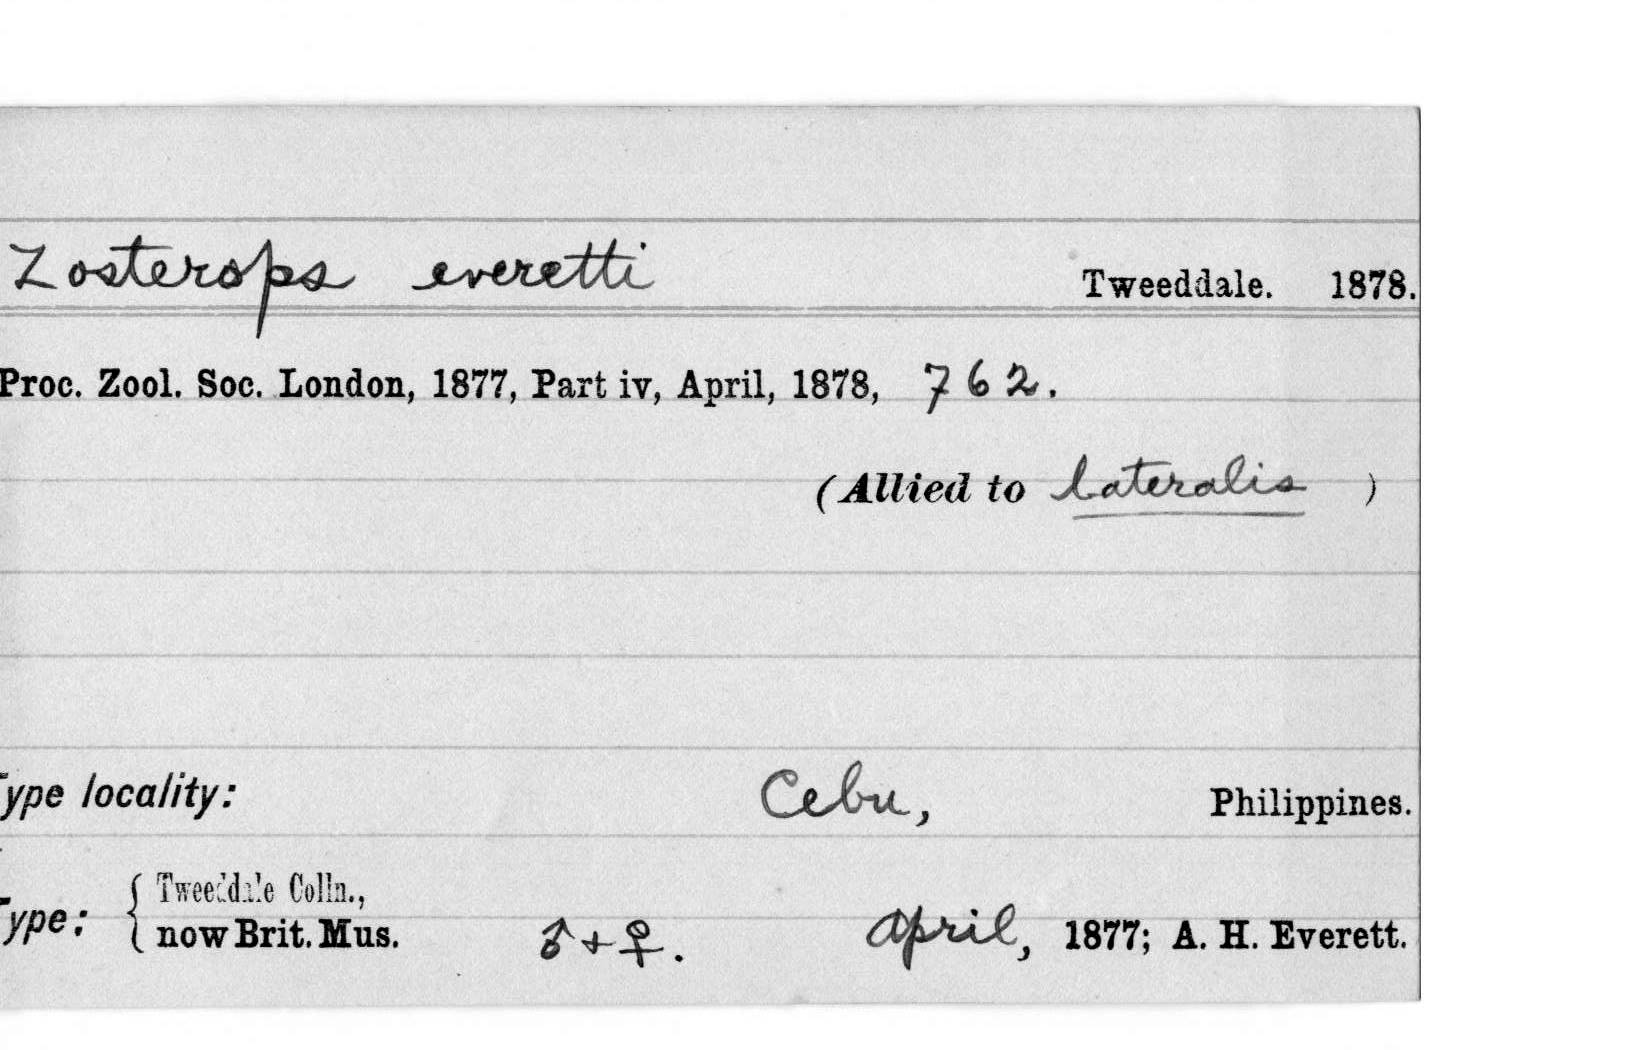 Zosterops everetti Tweeddale. 1878.
Proc. Zool. Soc. London, 1877, Part iv, April, 1878, 762.
(Allied to lateralis )
Type locality: Cebu, Philippines.
Type: { Tweeddale Colln.,
now Brit. Mus. ♂ + ♀. April, 1877; A. H. Everett.